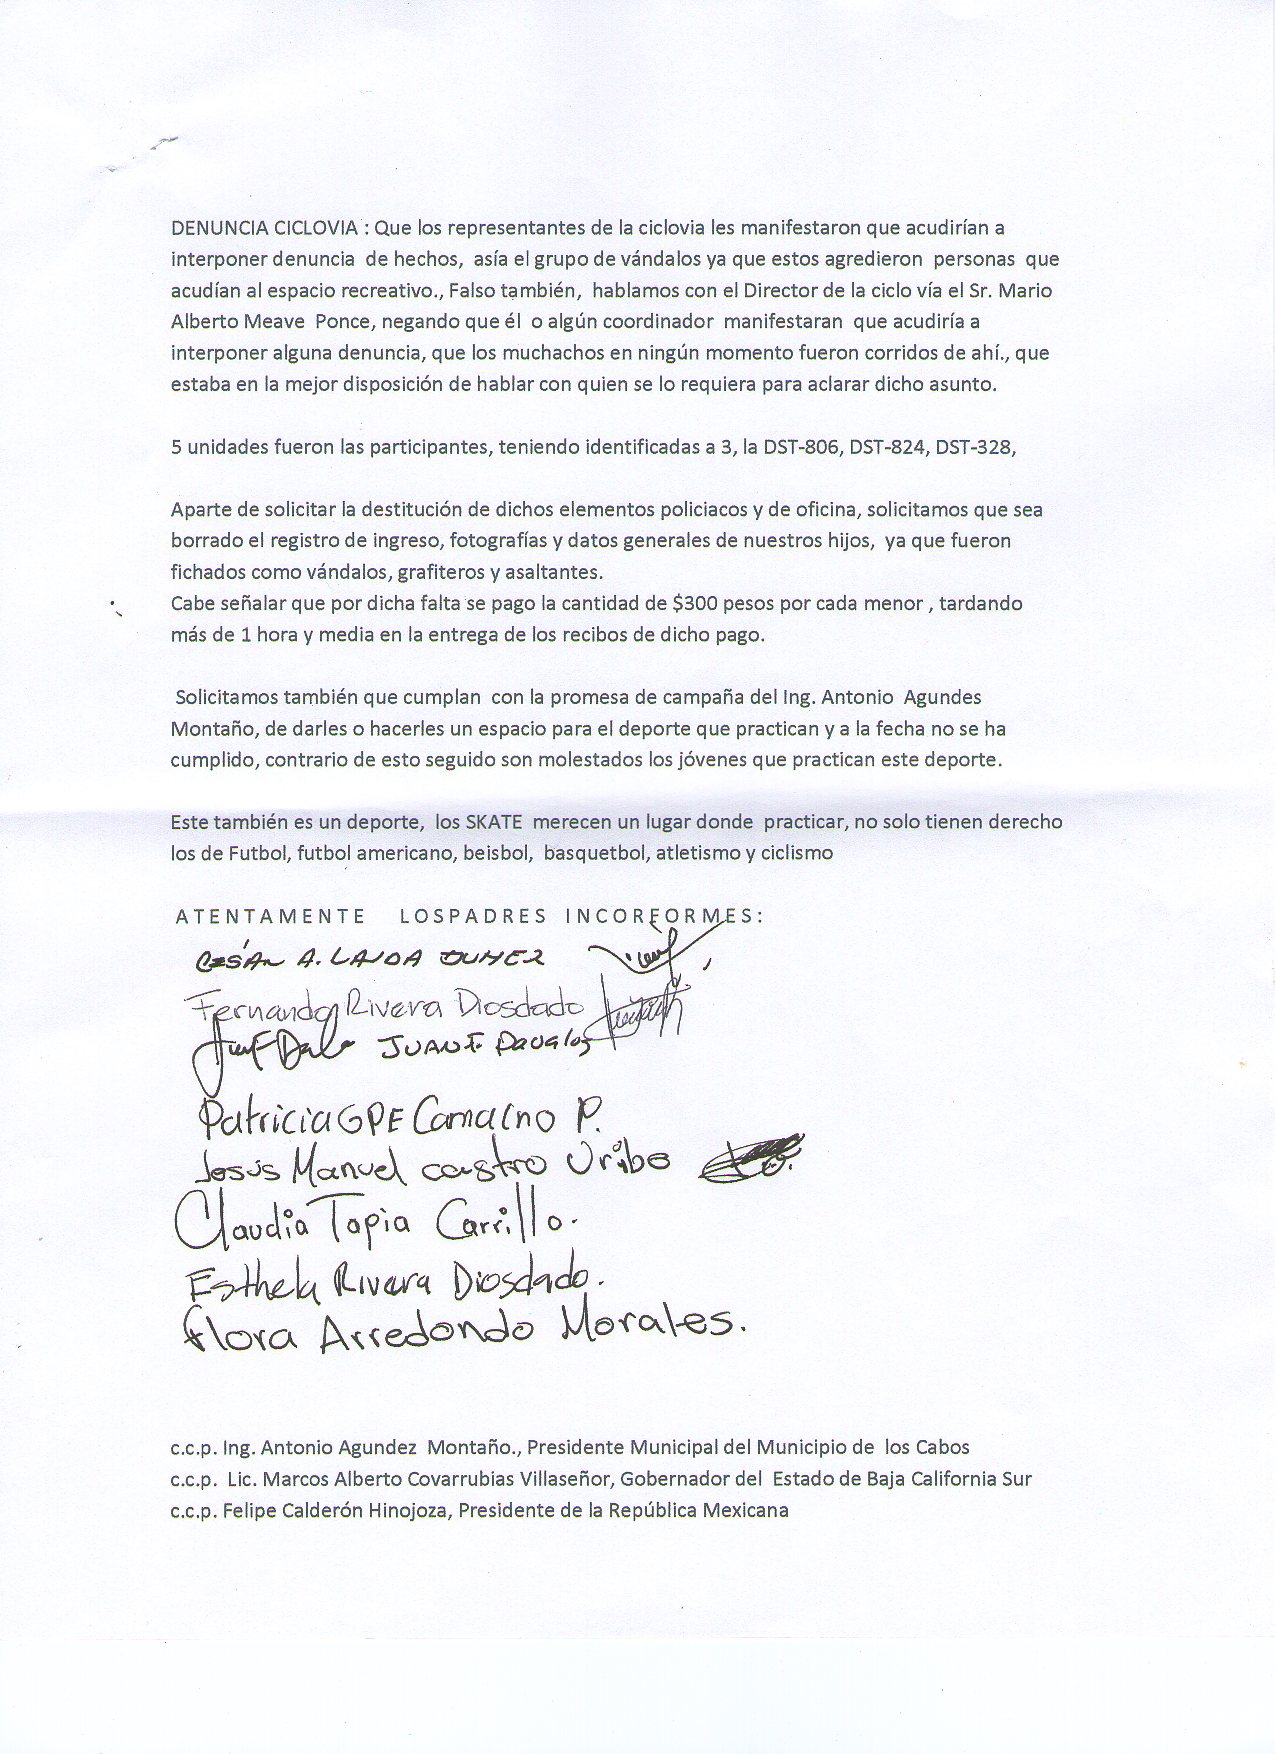 DENUNCIA CICLOVIA : Que los representantes de la ciclovia les manifestaron que acudirían a
interponer denuncia de hechos, asía el grupo de vándalos ya que estos agredieron personas que
acudían al espacio recreativo., Falso también, hablamos con el Director de la ciclo vía el Sr. Mario
Alberto Meave Ponce, negando que él o algún coordinador manifestaran que acudiría a
interponer alguna denuncia, que los muchachos en ningún momento fueron corridos de ahí., que
estaba en la mejor disposición de hablar con quien se lo requiera para aclarar dicho asunto.
5 unidades fueron las participantes, teniendo identificadas a 3, la DST-806, DST-824, DST-328,
Aparte de solicitar la destitución de dichos elementos policiacos y de oficina, solicitamos que sea
borrado el registro de ingreso, fotografías y datos generales de nuestros hijos, ya que fueron
fichados como vándalos, grafiteros y asaltantes.
Cabe señalar que por dicha falta se pago la cantidad de $300 pesos por cada menor , tardando
más de 1 hora y media en la entrega de los recibos de dicho pago.
Solicitamos también que cumplan con la promesa de campaña del Ing. Antonio Agundes
Montaño, de darles o hacerles un espacio para el deporte que practican y a la fecha no se ha
cumplido, contrario de esto seguido son molestados los jóvenes que practican este deporte.
Este también es un deporte, los SKATE merecen un lugar donde practicar, no solo tienen derecho
los de Futbol, futbol americano, beisbol, basquetbol, atletismo y ciclismo
ATENTAMENTE LOSPADRES INCORFORMES:
A.
Fernando Rivera Diosdado
JUAN F. Davalos
Patricia GPE Camacho P.
Jesús Manuel castro Uribe
Claudia Tapia Carrillo.
Esthela Rivera Diosdado.
flora Arredondo Morales.
c.c.p. Ing. Antonio Agundez Montaño., Presidente Municipal del Municipio de los Cabos
c.c.p. Lic. Marcos Alberto Covarrubias Villaseñor, Gobernador del Estado de Baja California Sur
c.c.p. Felipe Calderón Hinojoza, Presidente de la República Mexicana